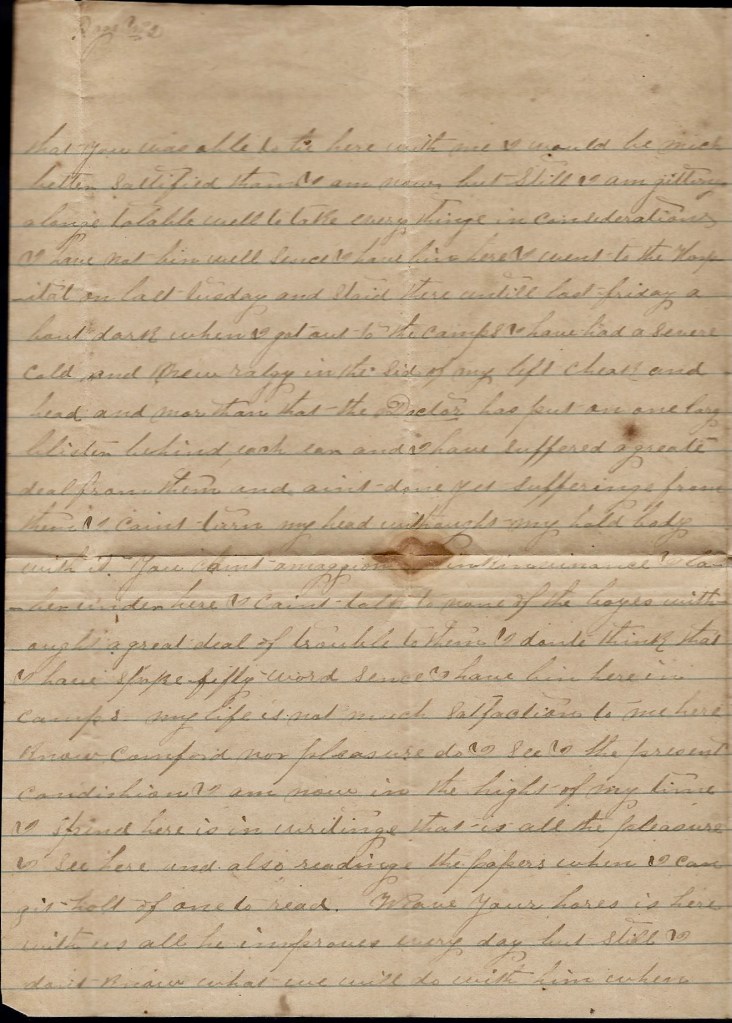 that you was able to be here with me I would be mutch
better sattified than I am now, but still I am gitting
alonge tolable well to take every thinge in considerations
I have not bin well sence I have bin here I went to the Hosp
-ital on last tusday and staid there untill last friday a
bout dark when I got out to the camps I have had a severe
cold and in the side of my left cheak and
head and mor than that the Doctor has put on one larg
blister behind each ear and I have suffered a greate
deal from them and aint done yet sufferinge from
them I caint turn my head withought my hold body
with it. You caint amaggion inkinvinance I la-
-ber under here I caint talk to none of the boyes with-
ought a great deal of trouble to them I donte think that
I have spoke fifty word sence I have bin here in
camps. my life is not much satfaction to me here
know comford nor pleasure do I see I the present
condishian I am now in the hight of my time
I spend here is in writinge that is all the pleasure
I see here and also readinge the papers when I can
git holt of one to read. Your hores is here
with us all he improves every day but still I
dont know what we will do with him when